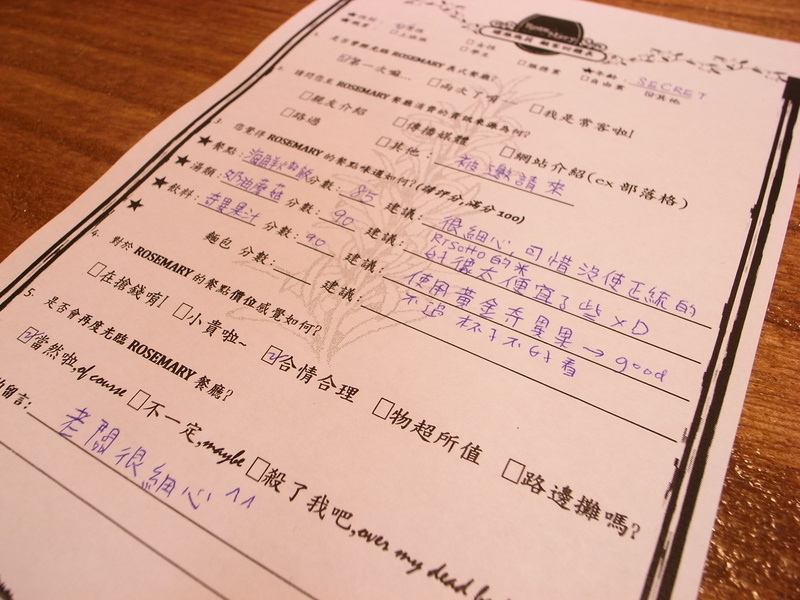 SECRET
★年齡:
□學生 □服務業 □自由業 ☑其他
1. 是否曾經光臨 ROSEMARY 義式餐廳?
☑第一次喔... □兩次了唷 □我是常客啦!
2. 請問您至 ROSEMARY 餐廳消費的資訊來源為何?
□親友介紹 □傳播媒體 □網站介紹(ex 部落格)
□路過 □其他: 被邀請來
3. 您覺得 ROSEMARY 的餐點味道如何?(請評分,滿分100)
★餐點: 海鮮燉飯 分數: 85 建議: 很細心 可惜沒使正統的
Risotto的米
★湯類: 奶油蘑菇 分數: 90 建議: 的很大便宜了些 XD
★飲料: 奇異果汁 分數: 90 建議: 使用黃金奇異果 → good
不過 杯子不好看
★ 麵包 分數: 建議:
4. 對於 ROSEMARY 的餐點價位感覺如何?
□在搶錢唷! □小貴啦~ ☑合情合理 □物超所值 □路邊攤嗎?
5. 是否會再度光臨 ROSEMARY 餐廳?
☑當然啦,of course □不一定,maybe □殺了我吧,over my dead
留言: 老闆很細心 ^^